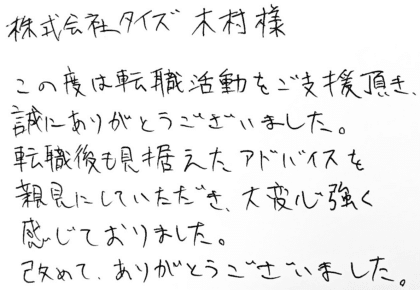 株式会社タイズ 木村様
この度は転職活動をご支援頂き、
誠にありがとうございました。
転職後も見据えたアドバイスを
親見にしていただき、大変心強く
感じておりました。
改めて、ありがとうございました。